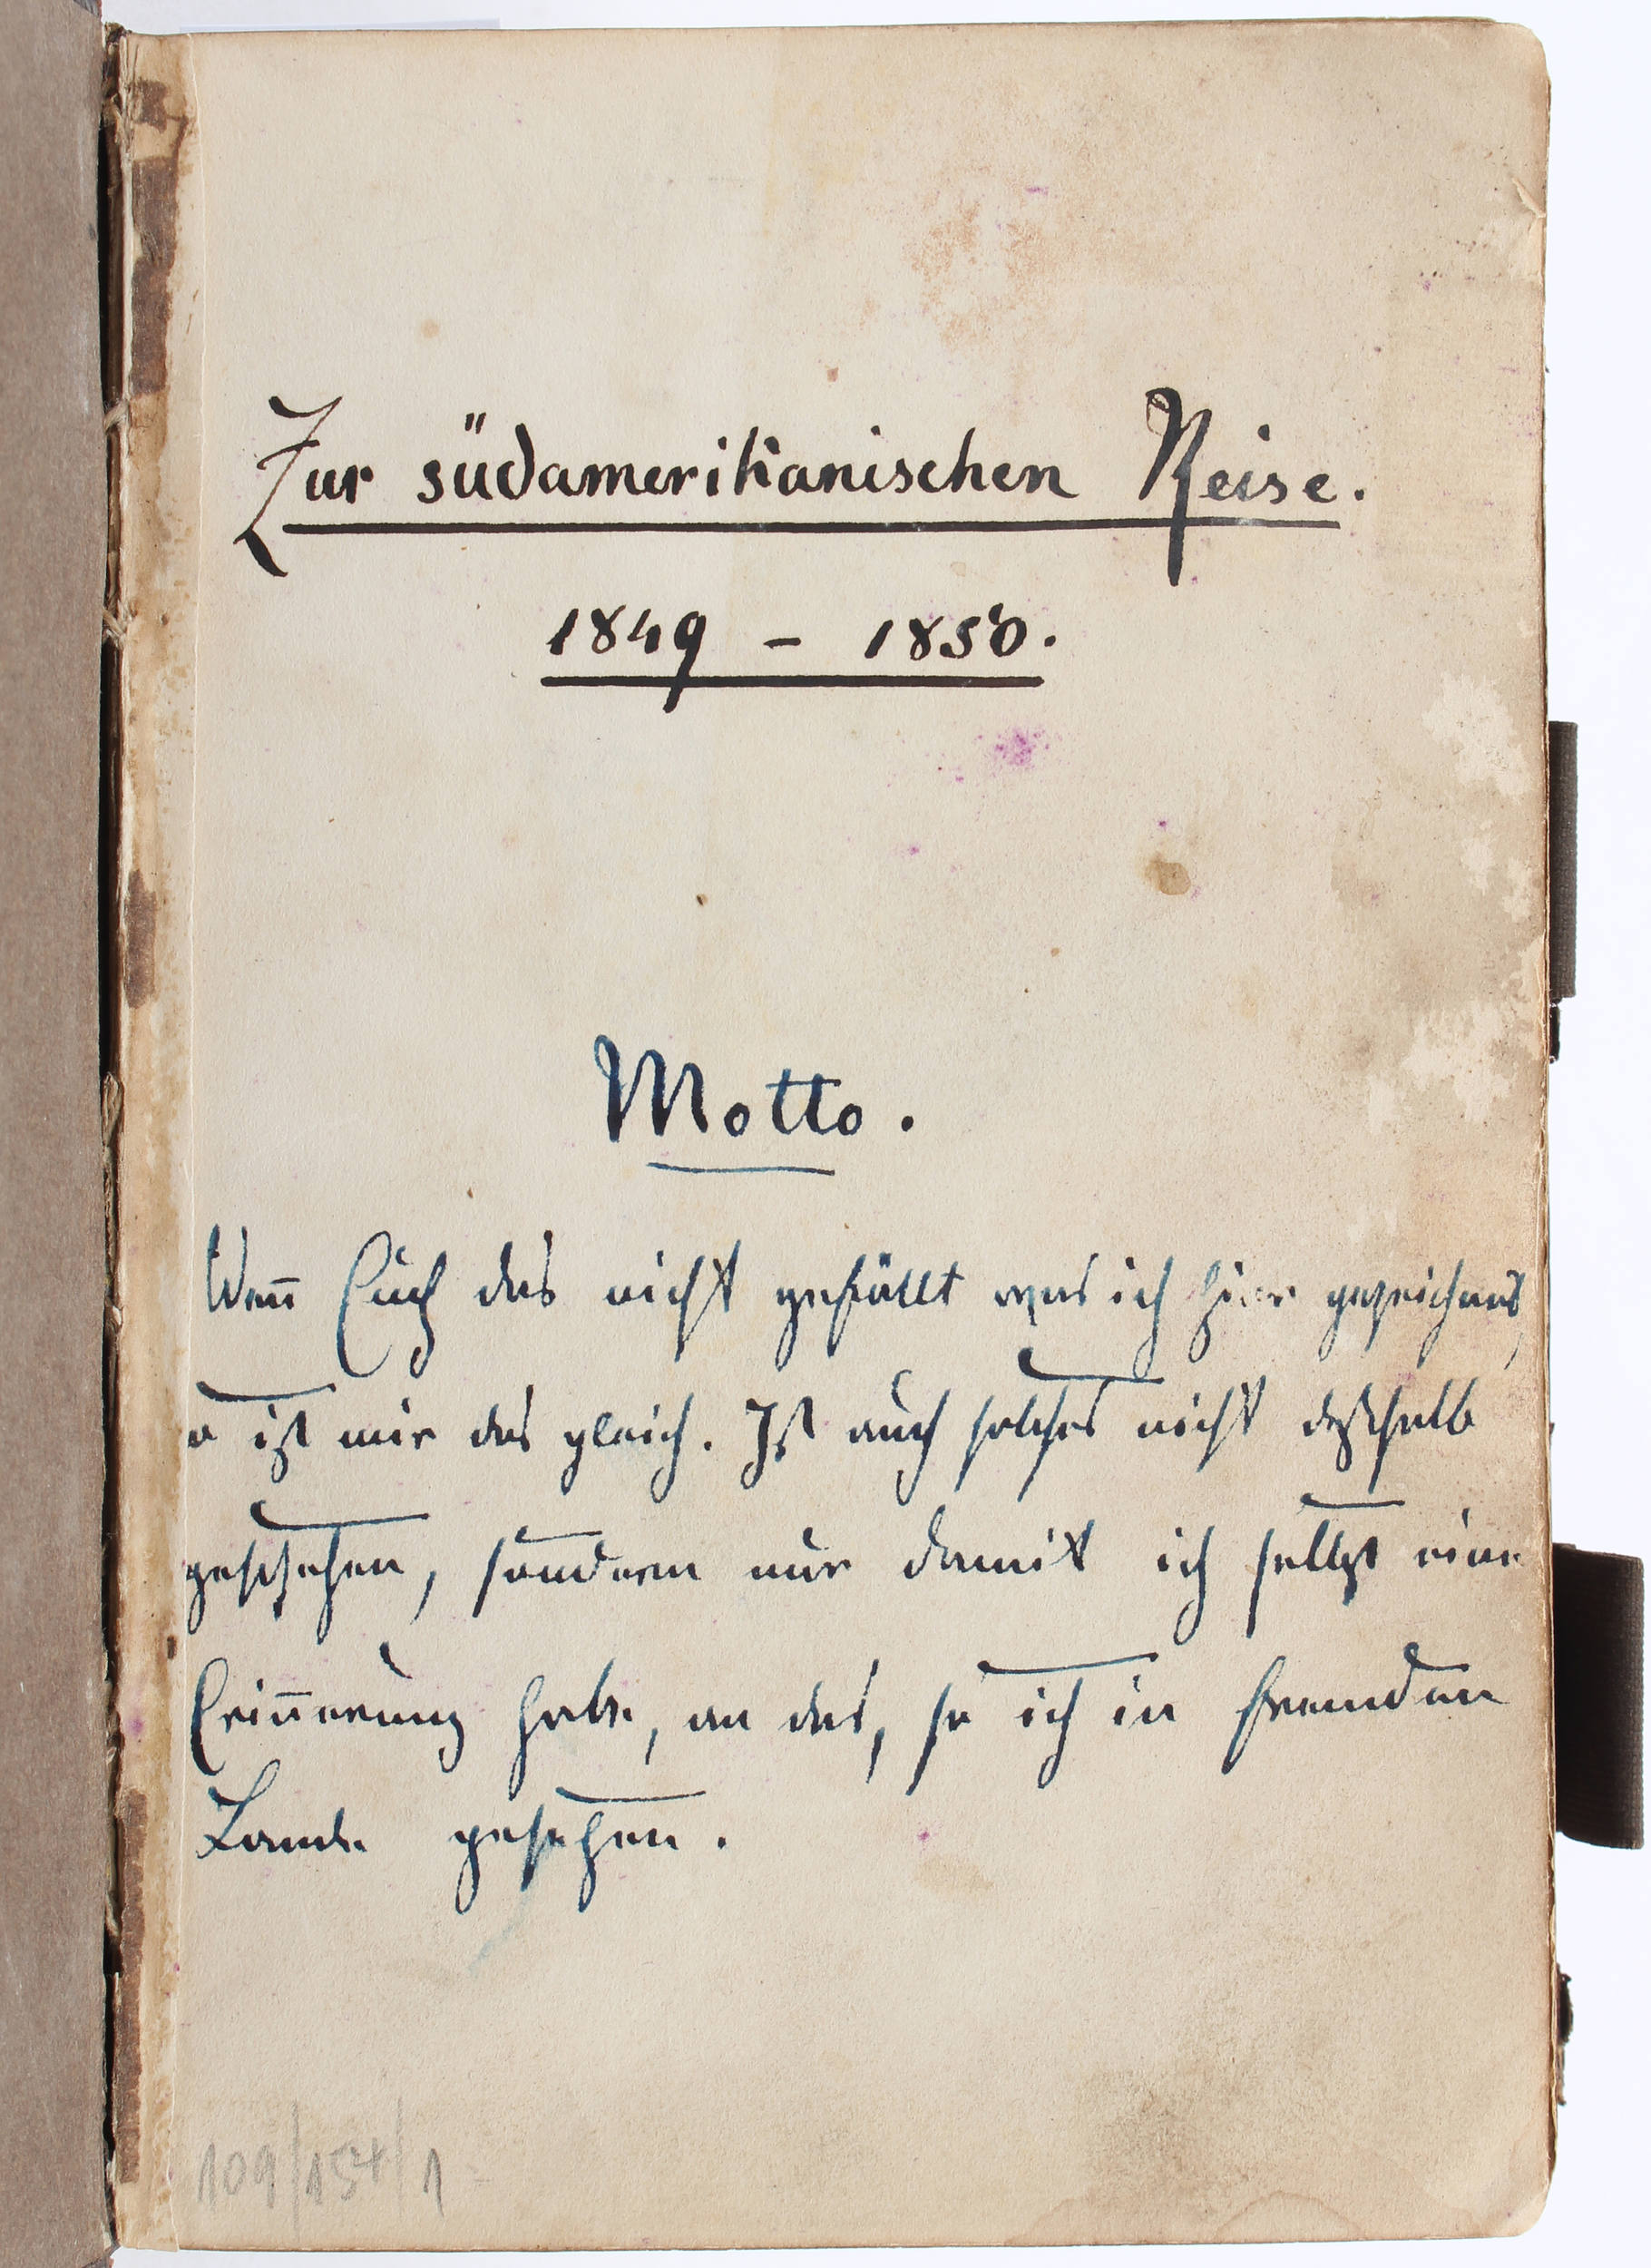 Zur südamerikanischen Reise.
1849 - 1850.
Motto.
Weñ Euch das nicht gefällt was ich hier gezeichnet,
so ist mir das gleich. Ist auch solches nicht deßhalb
geschehen, sondern nur damit ich selbst eine
Eriñerung habe, an das, so ich in fremden
Lande gesehen.
109/154/1